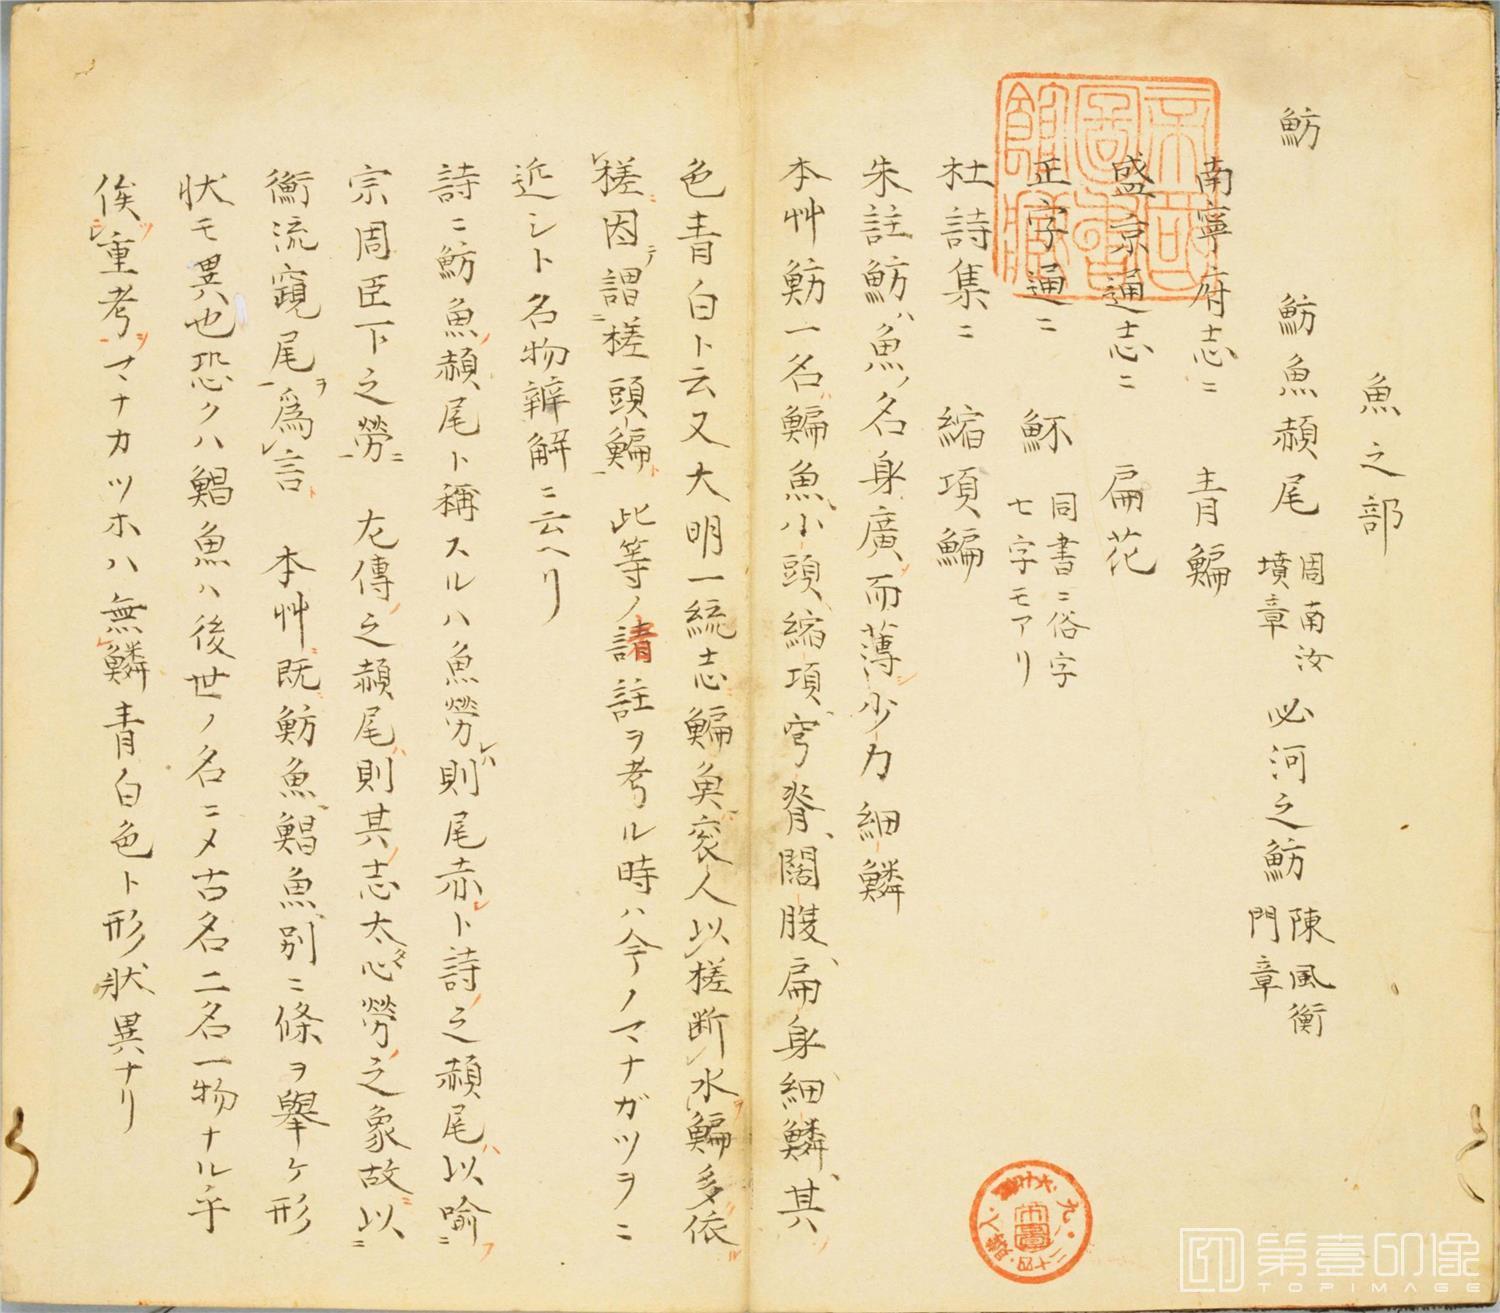 魚之部
魴　魴魚赬尾 周南汝墳章 必河之魴 陳風衡門章
南寧府志ニ　青鯿
盛京通志ニ　扁花
正字通ニ　魾 同書ニ俗字七字モアリ
杜詩集ニ　縮項鯿
朱註魴ハ魚ノ名身廣而薄少力細鱗
本艸魴一名鯿魚小頭縮項穹脊闊腹扁身細鱗其
色青白ト云又大明一統志鯿魚㐮人以槎断水鯿多依
槎因謂槎頭鯿　此等ノ諸註ヲ考ル時ハ今ノマナガツヲニ
近シト名物辨解ニ云ヘリ
詩ニ魴魚赬尾ト稱スルハ魚勞則尾赤ト詩之赬尾以喻
宗周臣下之勞　左傳之赬尾則其志太心勞之象故以
衡流窺尾爲言　本艸既魴魚鯧魚別ニ條ヲ擧ケ形
状モ異也恐クハ鯧魚ハ後世ノ名ニメ古名二名一物ナル乎
俟重考マナカツホハ無鱗青白色ト形状異ナリ
帝国圖書館藏
第壹印像
TOPIMAGE